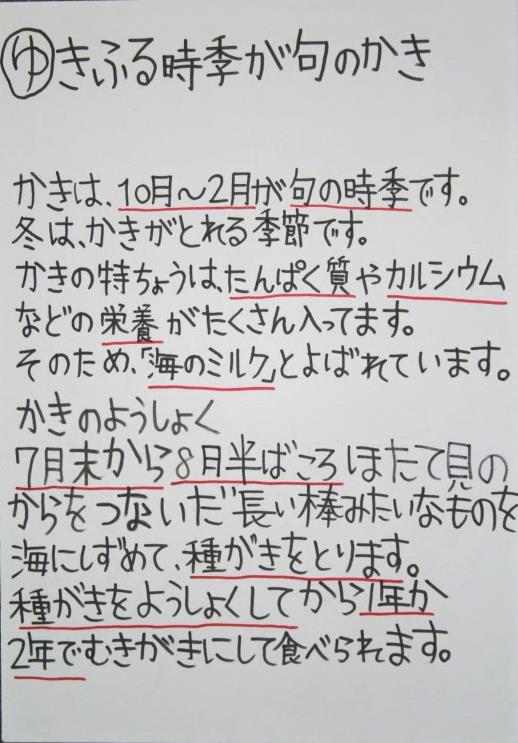 ゆきふる時季が句のかき
かきは、10月〜2月が句の時季です。
冬は、かきがとれる季節です。
かきの特ちょうは、たんぱく質やカルシウム
などの栄養がたくさん入ってます。
そのため、「海のミルク」とよばれています。
かきのようしょく
7月末から8月半ばごろほたて貝の
からをつないだ長い棒みたいなものを
海にしずめて、種がきをとります。
種がきをようしょくしてから1年か
2年でむきがきにして食べられます。